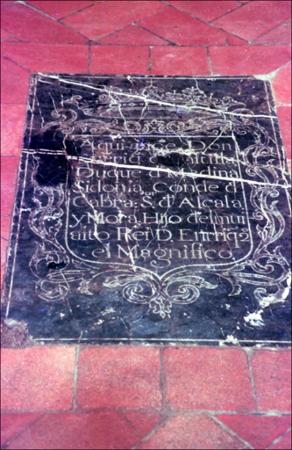 Aqui iace Don
Enrriq de Castilla
Duque d Medina
Sidonia, Conde d
Cabra, S. d'Alcala
y Mora, Hijo del mui
alto Rei D. Enrriq 2
el Magnifico